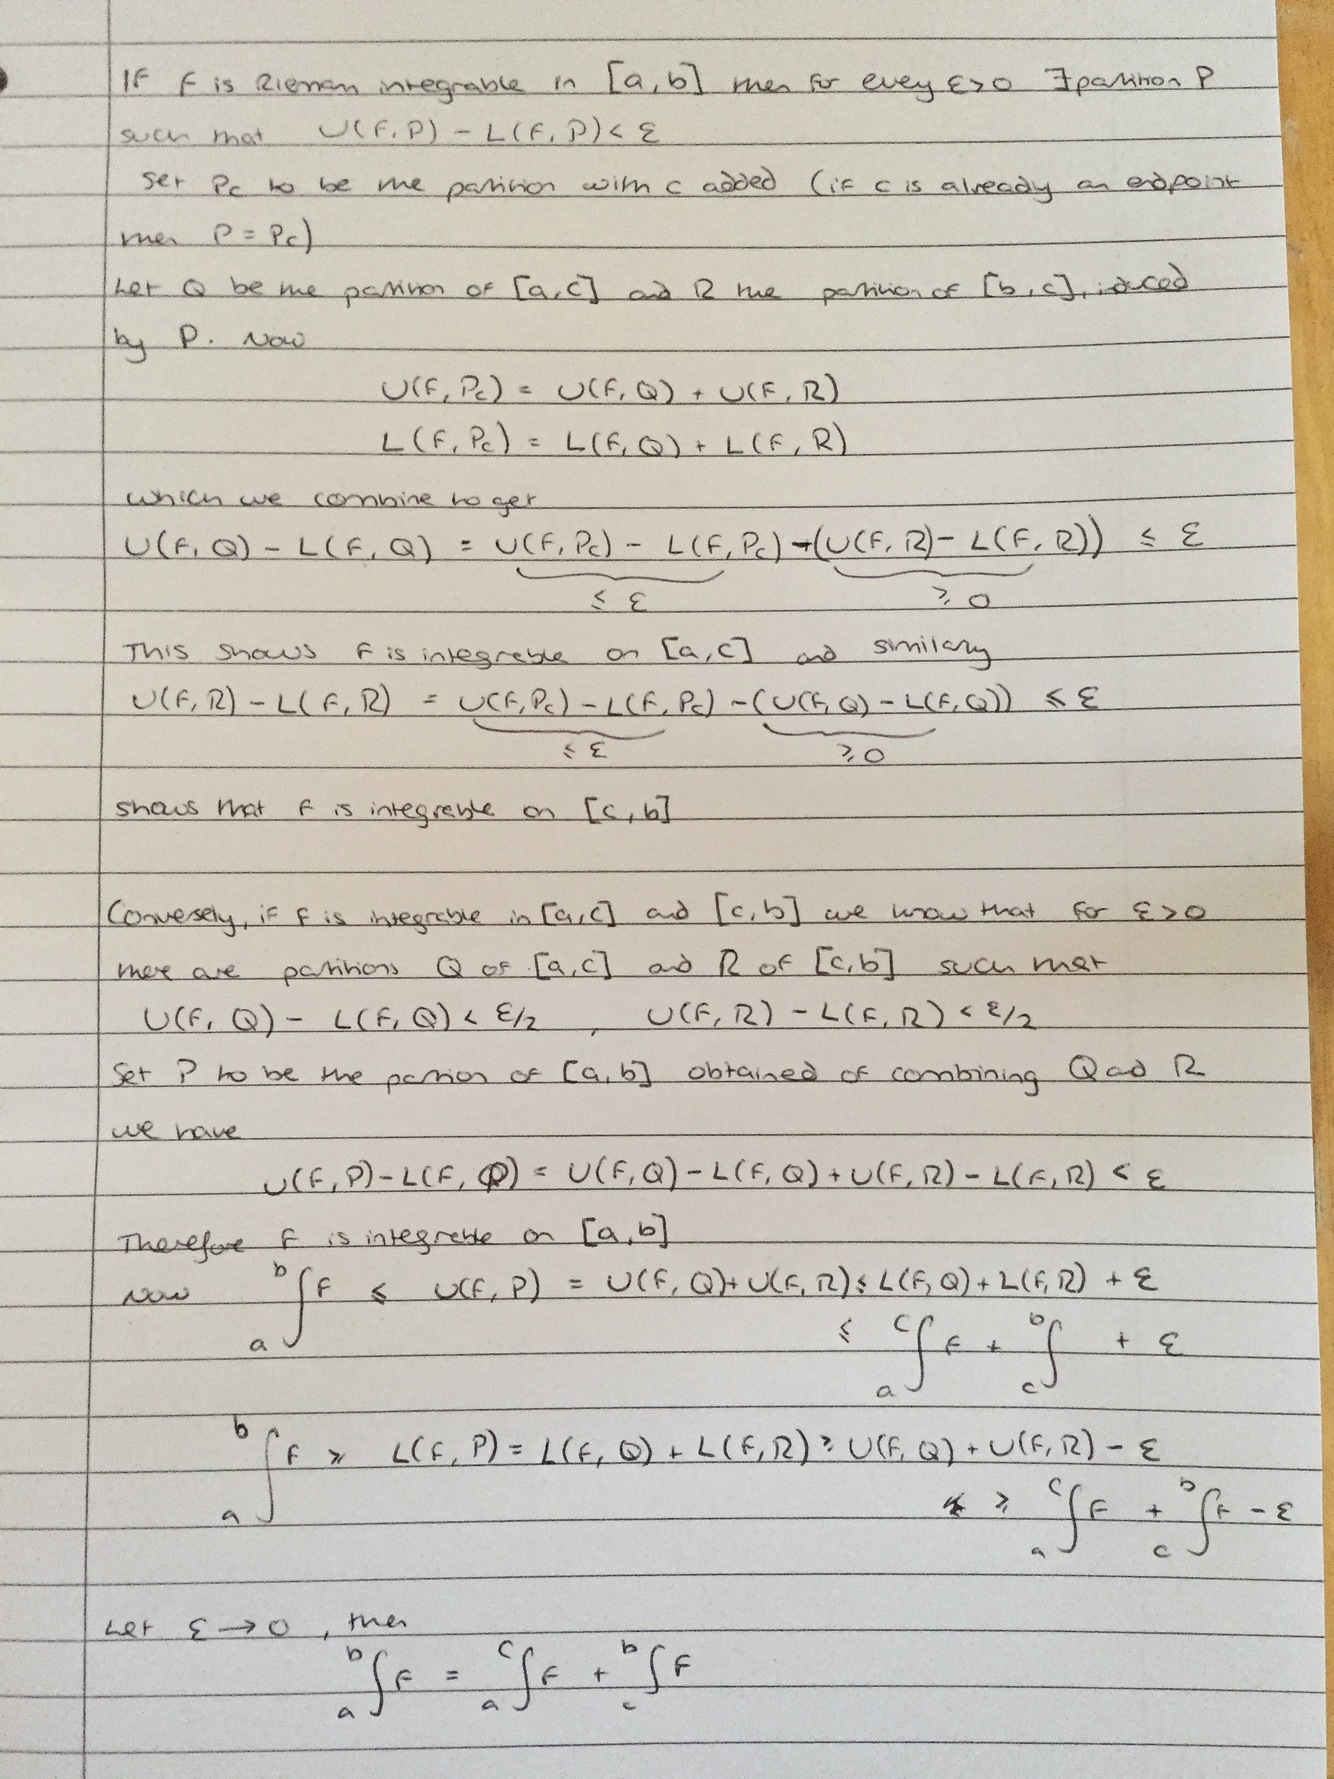 If f is Rieman integrable in [a,b] then for every ε>0 ∃ partition P
such that U(f,P) - L(f,P) < ε
Set Pc to be the partition with c added (if c is already an endpoint
then P = Pc)
Let Q be the partition of [a,c] and R the partition of [b,c], induced
by P. Now
U(f,Pc) = U(f,Q) + U(f,R)
L(f,Pc) = L(f,Q) + L(f,R)
which we combine to get
U(f,Q) - L(f,Q) = U(f,Pc) - L(f,Pc) - (U(f,R) - L(f,R)) ≤ ε
≤ ε ≥ 0
This shows f is integrable on [a,c] and similary
U(f,R) - L(f,R) = U(f,Pc) - L(f,Pc) - (U(f,Q) - L(f,Q)) ≤ ε
≤ ε ≥ 0
shows that f is integrable on [c,b]
Conversely, if f is integrable in [a,c] and [c,b] we know that for ε>0
there are partitions Q of [a,c] and R of [c,b] such that
U(f,Q) - L(f,Q) < ε/2 , U(f,R) - L(f,R) < ε/2
Set P to be the partion of [a,b] obtained of combining Q and R
we have
U(f,P) - L(f,P) = U(f,Q) - L(f,Q) + U(f,R) - L(f,R) < ε
Therefore f is integrable on [a,b]
Now ∫_a^b f ≤ U(f,P) = U(f,Q) + U(f,R) ≤ L(f,Q) + L(f,R) + ε
≤ ∫_a^c f + ∫_c^b + ε
∫_a^b f ≥ L(f,P) = L(f,Q) + L(f,R) ≥ U(f,Q) + U(f,R) - ε
≥ ∫_a^c f + ∫_c^b f - ε
Let ε → 0, then
∫_a^b f = ∫_a^c f + ∫_c^b f